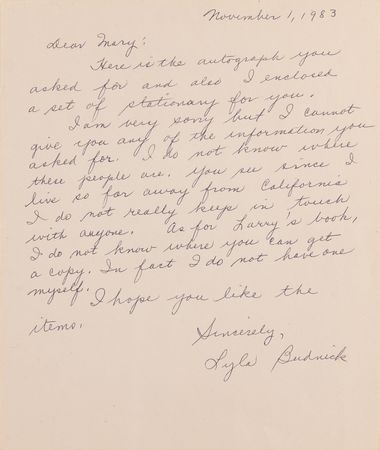 November 1, 1983
Dear Mary:
Here is the autograph you
asked for and also I enclosed
a set of stationary for you.
I am very sorry but I cannot
give you any of the information you
asked for. I do not know where
these people are. you see since I
live so far away from California
I do not really keep in touch
with anyone. As for Larry's book,
I do not know where you can get
a copy. In fact I do not have one
myself.
I hope you like the
items.
Sincerely,
Lyla Budnick